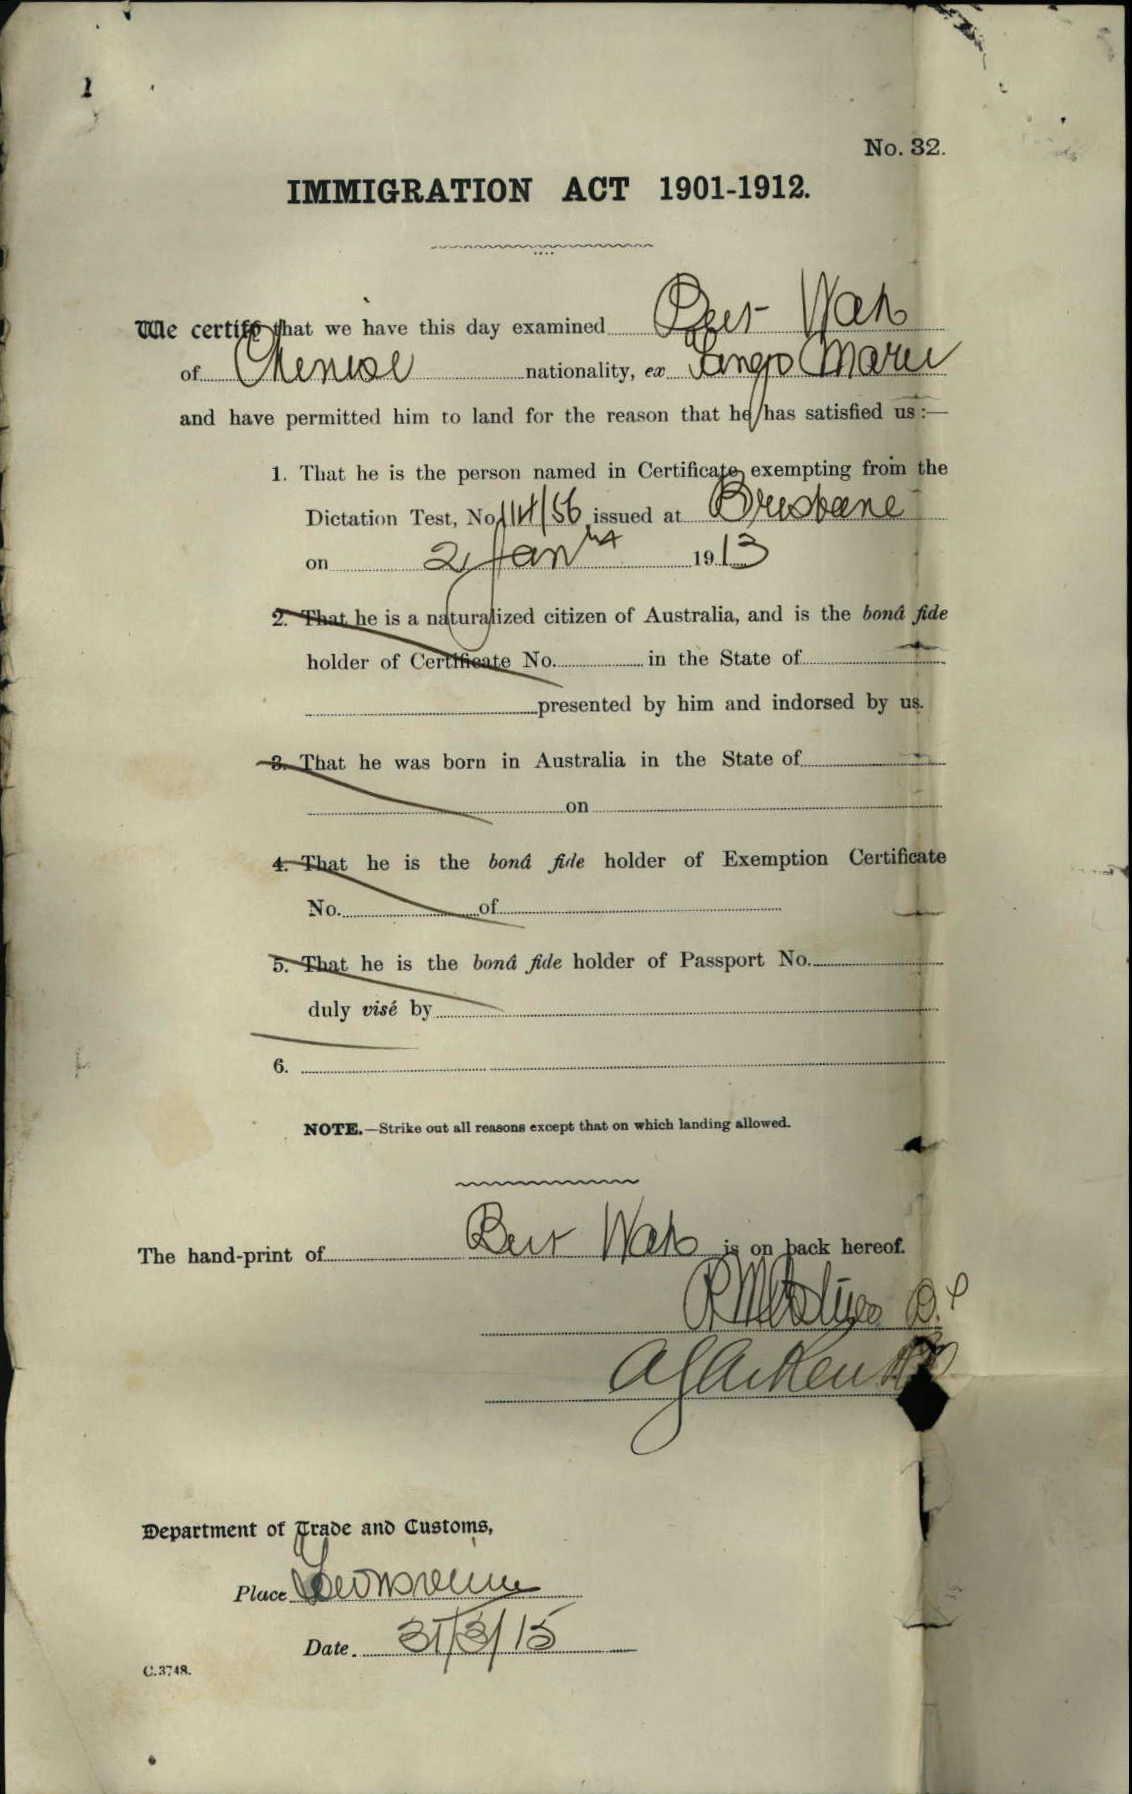 No. 32.
IMMIGRATION ACT 1901-1912.
We certify that we have this day examined Bert Wah
of Chinese nationality, ex Tango Maru
and have permitted him to land for the reason that he has satisfied us :—
1. That he is the person named in Certificate exempting from the
Dictation Test, No. 114/56 issued at Brisbane
on 2 Jan 1913
2. That he is a naturalized citizen of Australia, and is the bonâ fide
holder of Certificate No. in the State of
presented by him and indorsed by us.
3. That he was born in Australia in the State of
on
4. That he is the bonâ fide holder of Exemption Certificate
No. of
5. That he is the bonâ fide holder of Passport No.
duly visé by
6.
NOTE.—Strike out all reasons except that on which landing allowed.
The hand-print of Bert Wah is on back hereof.
Department of Trade and Customs,
Place Townsville
Date. 31/3/15
C.3748.